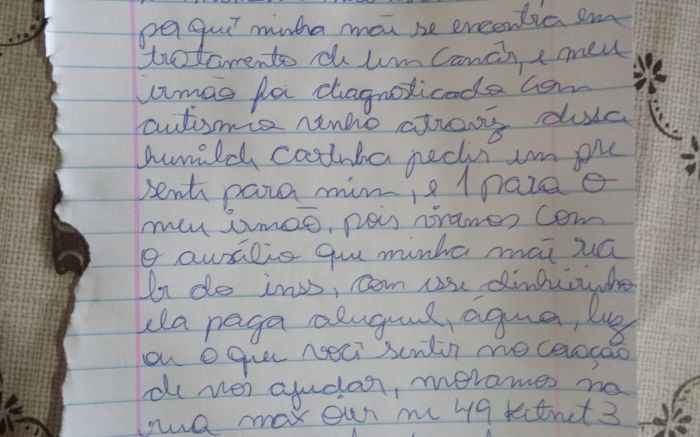 pq quê minha mãe se encontra em
tratamento de um cancêr, e meu
irmão foi diagnosticado com
autismo venho atravéz dessa
humilde cartinha pedir um pre
sente para mim, e 1 para o
meu irmão, pois vivamos com
o auxílio que minha mãe rece
be do inss, com esse dinheirinho
ela paga aluguel, água, luz
ou o que você sentir no coração
de nos ajudar, moramos na
rua max nº 49 kitnet 3